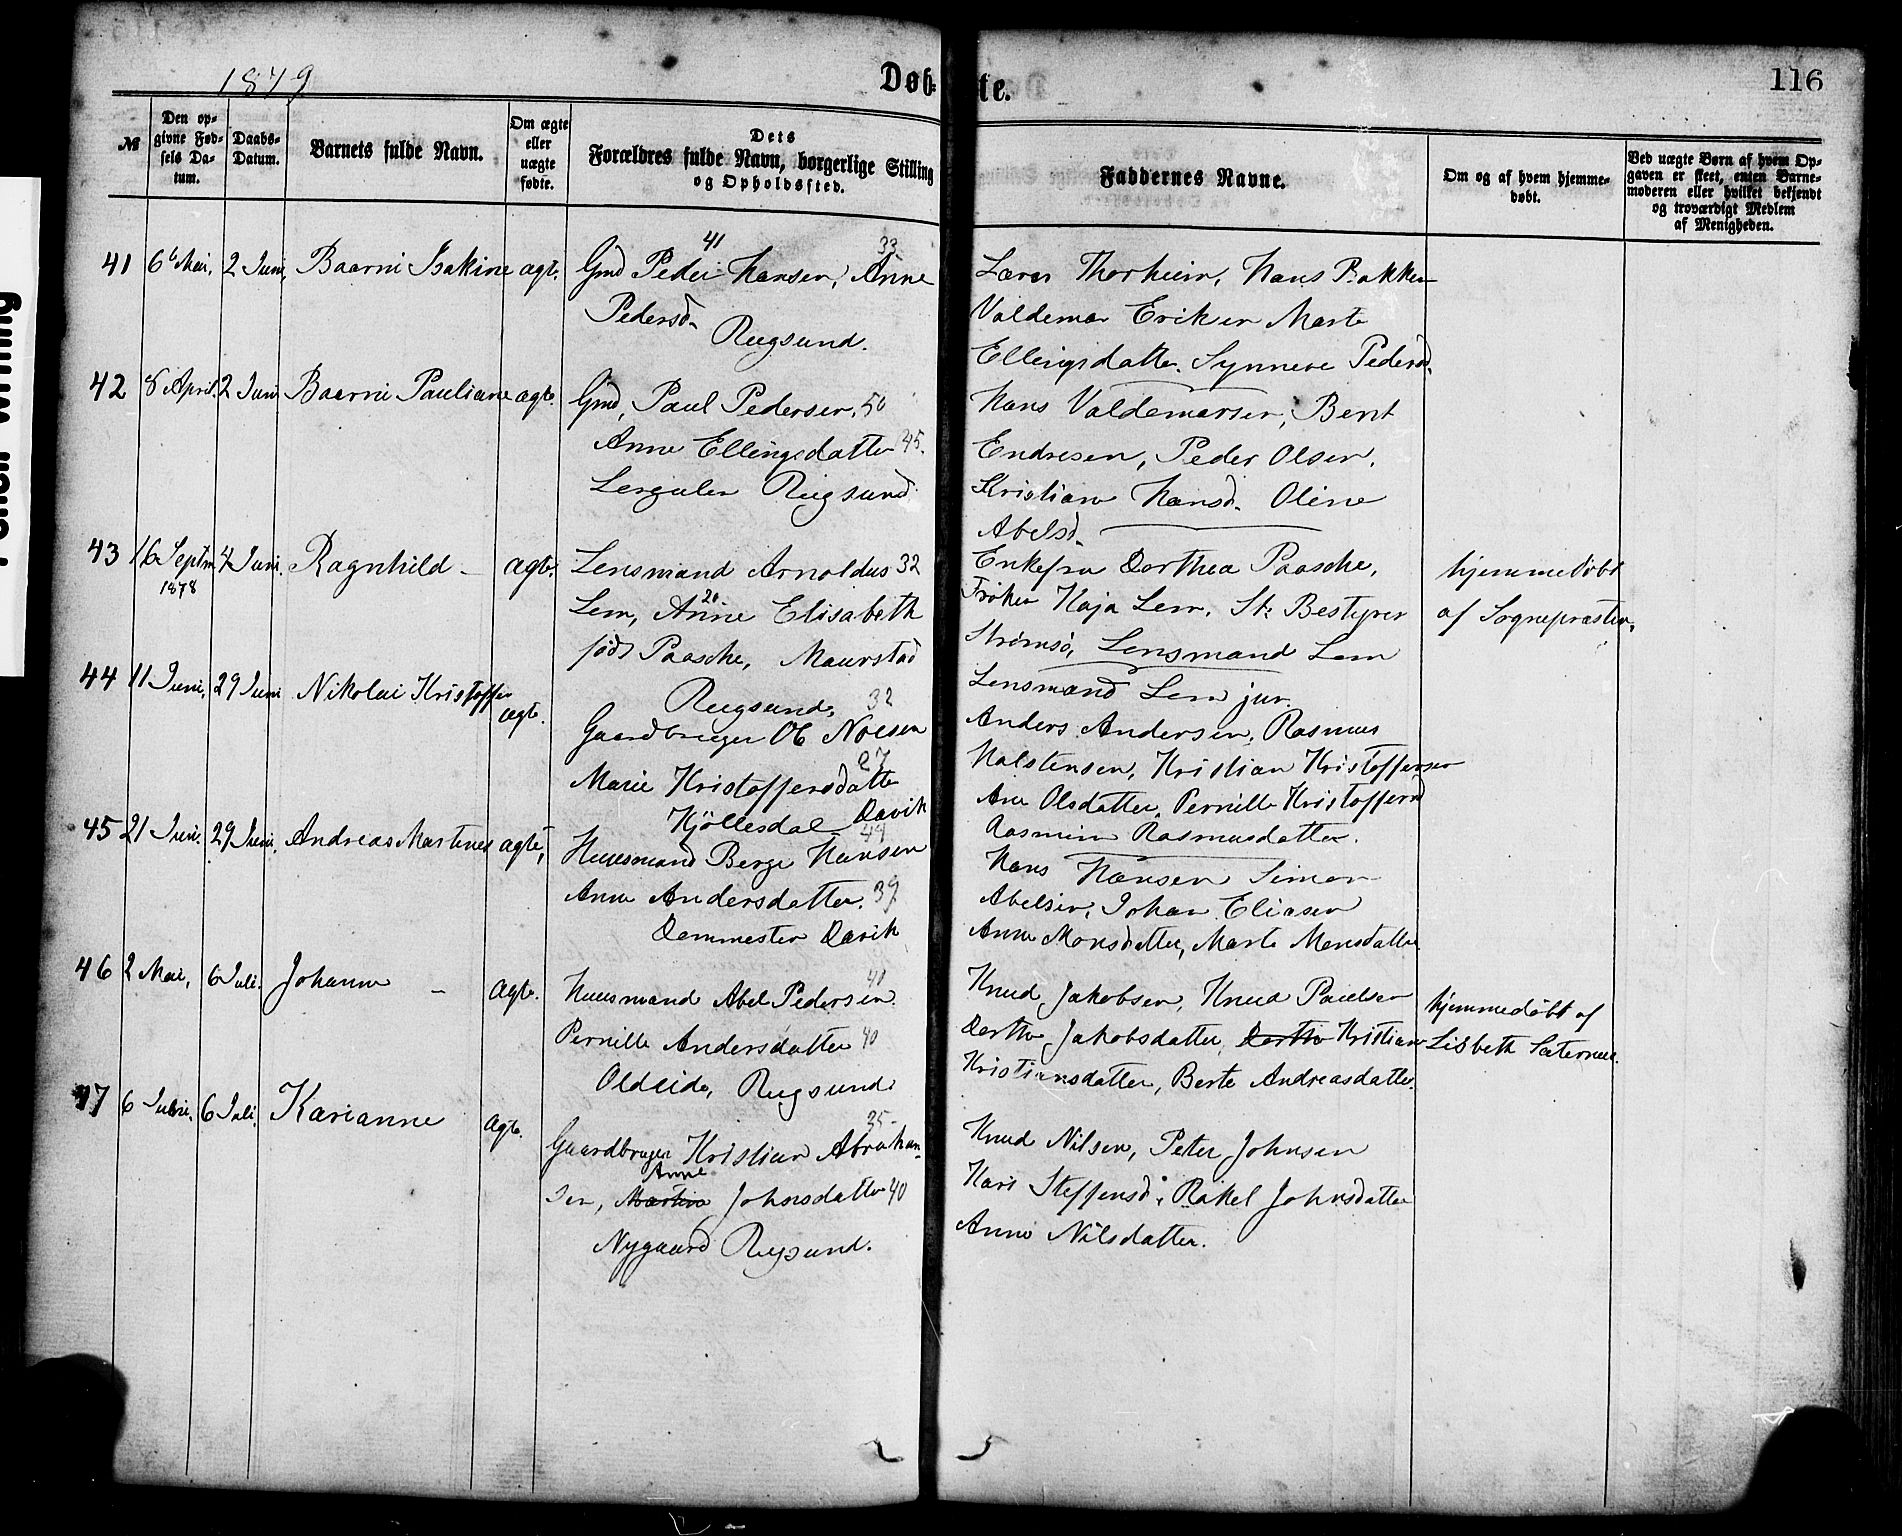 1879
Døb-
te.
116
№
Den op-
givne Fød-
sels Da-
tum.
Daabs-
Datum.
Barnets fulde Navn.
Om ægte
eller
uægte
fødte.
Dets
Forældres fulde Navn, borgerlige Stilling
og Opholdssted.
Faddernes Navne.
Om og af hvem hjemme-
døbt.
Ved uægte Børn af hvem Op-
gaven er skeet, enten Barne-
moderen eller hvilket bekjendt
og troværdigt Medlem
af Menigheden.
41 6t Mai, 2 Juni, Baarni Isakine ægt.
41 33
Gmd Peder Hansen, Anne
Pedersd.
Rugsund.
Lærer Thorheim, Hans Bakken
Valdemar Eriksen Marte
Ellingsdatter. Synneve Pedersd.
42 8 April. 2 Juni Baarni Pauliane ægt.
Gmd, Paul Pedersen, 50
Anne Ellingsdatter 45.
Lergulen Rugsund
Hans Valdemarsen, Bernt
Endresen, Peder Olsen.
Kristiane Hansd. Oline
Abelsd.
43 16 Septm 1878 4 Juni. Ragnhild - ægt.
Lensmand Arnoldus 32
20
Lem, Anne Elisabeth
født Paasche, Maurstad
Rugsund,
Enkefru Dorthea Paasche,
Frøken Kaja Lem, St. Bestyrer
Strømsø, Lensmand Lem
Lensmand Lem jun.
hjemmedøbt
af Sognepræsten.
44 11 Juni, 29 Juni Nikolai Kristoffer ægt.
32
Gaardbruger Ole Nilsen
27
Marie Kristoffersdatter
Kjöllesdal Davik
Anders Andersen, Rasmus
Halstensen, Kristian Kristoffersen
Ane Olsdatter, Pernille Kristoffersd
Rasmine Rasmusdatter.
45 21 Juni. 29 Juni. Andreas Martines ægt,
44
Huusmand Berge Hansen
Anne Andersdatter. 39
Dommesten Davik
Hans Hansen Simon
Abelsen, Johan Eliasen
Anne Monsdatter, Marte Monsdatter
46 2 Mai, 6 Juli. Johanne - ægt.
40
Huusmand Abel Pedersen.
Pernille Andersdatter 40
Oldeide, Rugsund
Knud Jakobsen, Knud Paulsen
Dorthe Jakobsdatter, Dorthe Kristiane
Kristiansdatter, Berte Andreasdatter.
hjemmedøbt af
Lisbeth Sæternæs.
47 6 Juni. 6 Juli. Karianne ægt.
35
Gaardbruger Kristian Abraham-
Anne
sen, Marthe Johnsdatter 40
Nygaard Rugsund.
Knud Nilsen, Peter Johnsen
Kari Steffensd. Rakel Johnsdatter
Anne Nilsdatter.